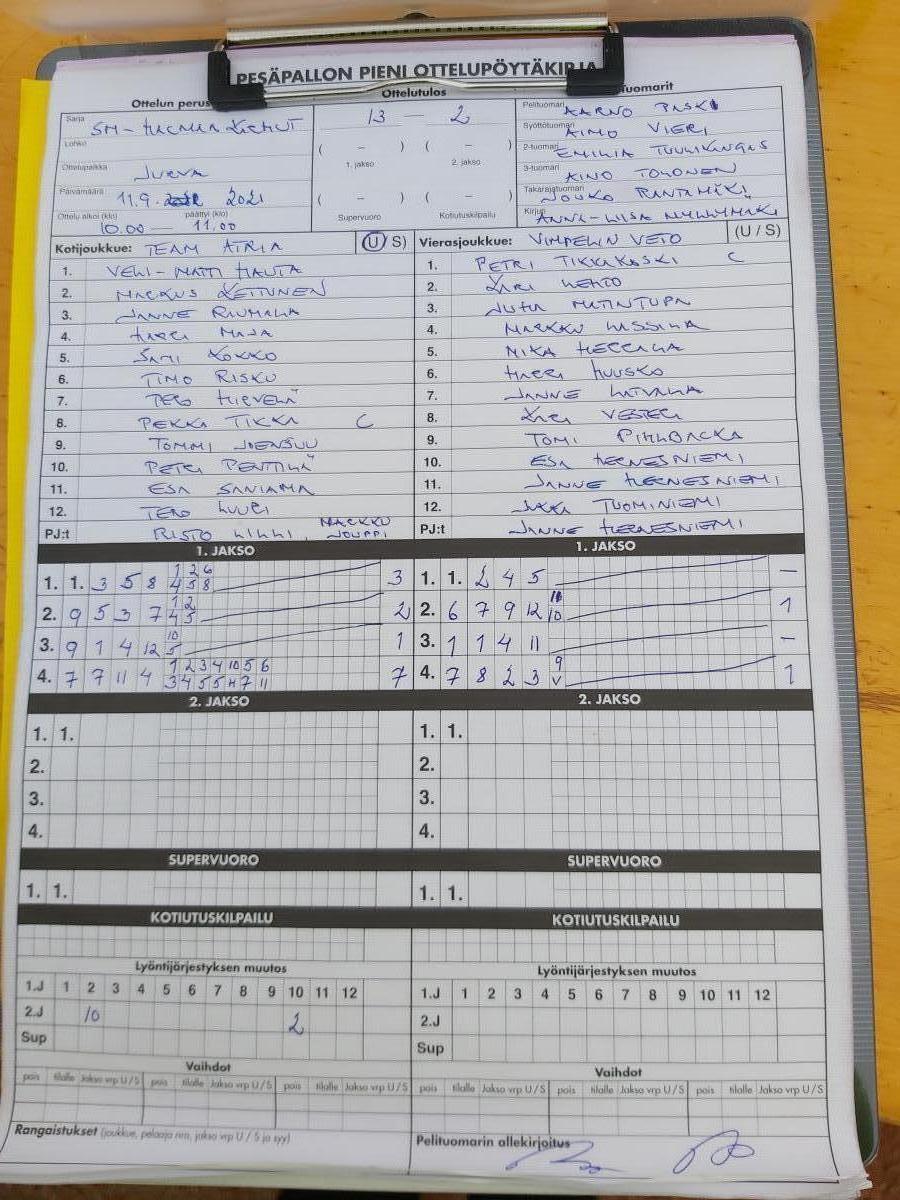 PESÄPALLON PIENI OTTELUPÖYTÄKIRJA
Ottelun perus
Ottelutulos
tuomarit
Sarja
SM-
Lohko
Ottelupaikka
JURVA
Päivämäärä
11.9. 2021
Ottelu alkoi (klo) päättyi (klo)
10.00 — 11.00
13 — 2
( – ) ( – )
1. jakso 2. jakso
( – ) ( – )
Supervuoro Kotiutuskilpailu
Pelituomari AARNO PASKI
Syöttötuomari AIMO VIERI
2-tuomari EMILIA TUULIKANGAS
3-tuomari AINO TOLONEN
Takarajatuomari JOUKO RANTAMÄKI
Kirjuri ANNA-LIISA MYLLYMÄKI
Kotijoukkue: TEAM ATRIA (U / S)
1. VELI-MATTI HAUTA
2. MARKUS KETTUNEN
3. JANNE RIUMALA
4. HARRI MAJA
5. SAMI KOKKO
6. TIMO RISKU
7. TERO HIRVELÄ
8. PEKKA TIKKA C
9. TOMMI JOENSUU
10. PETRI PENTTILÄ
11. ESA SANIAMA
12. TERO LUURI
PJ:t RISTO LILLI, MARKKU JOUPPI
Vierasjoukkue: VIMPELIN VETO (U / S)
1. PETRI TIKKAKOSKI C
2. KARI LEHTO
3. JUHA MUTINTUPA
4. MARKKU LASSILA
5. MIKA HERRALA
6. HARRI HUUSKO
7. JANNE LATVALA
8. KARI VESTERI
9. TOMI PIHLBACKA
10. ESA HERNESNIEMI
11. JANNE HERNESNIEMI
12. JUKKA TUOMINIEMI
PJ:t JANNE HERNESNIEMI
1. JAKSO
1. 1. 3 5 8 1 2 6 3
4 5 8
2. 9 5 3 7 1 2 2
4 5
3. 9 1 4 12 10 1
5
4. 7 7 11 4 1 2 3 4 10 5 6 7
3 4 5 5 11 7 11
1. JAKSO
1. 1. 2 4 5 –
2. 6 7 9 12 11 1
10
3. 1 1 4 11 –
4. 7 8 2 3 9 1
V
2. JAKSO
1. 1.
2.
3.
4.
2. JAKSO
1. 1.
2.
3.
4.
SUPERVUORO
1. 1.
SUPERVUORO
1. 1.
KOTIUTUSKILPAILU
KOTIUTUSKILPAILU
Lyöntijärjestyksen muutos
1.J 1 2 3 4 5 6 7 8 9 10 11 12
2.J 10 2
Sup
Lyöntijärjestyksen muutos
1.J 1 2 3 4 5 6 7 8 9 10 11 12
2.J
Sup
Vaihdot
pois tilalle Jakso vrp U / S pois tilalle Jakso vrp U / S pois tilalle Jakso vrp U / S
Vaihdot
pois tilalle Jakso vrp U / S pois tilalle Jakso vrp U / S pois tilalle Jakso vrp U / S
Rangaistukset (joukkue, pelaaja nro, jakso vrp U / S ja syy)
Pelituomarin allekirjoitus